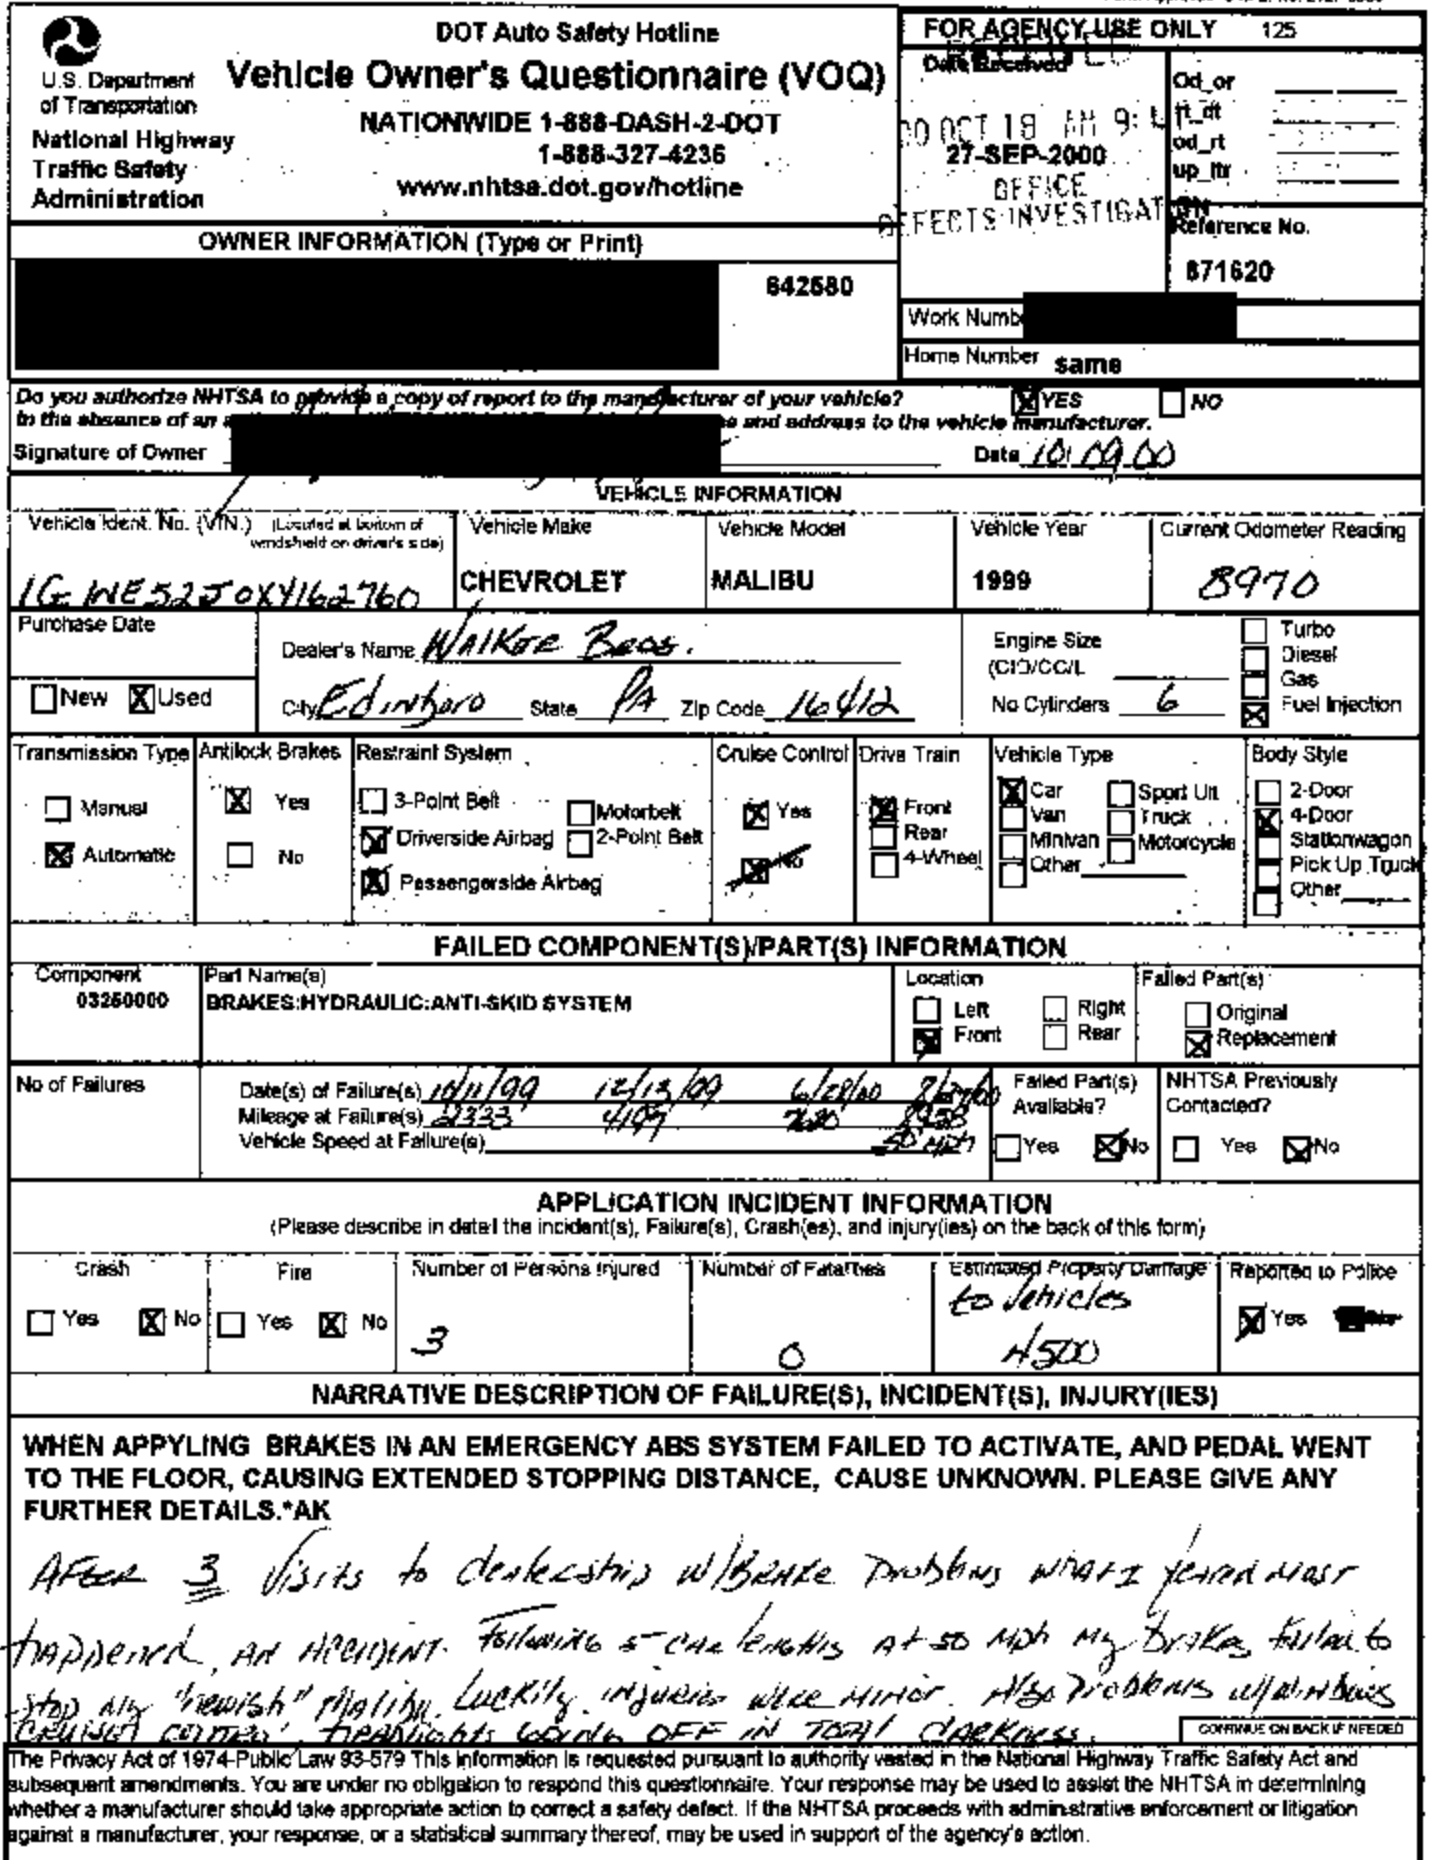 DOT Auto Safety Hotline
Vehicle Owner's Questionnaire (VOQ)
NATIONWIDE 1-888-DASH-2-DOT
1-888-327-4236
www.nhtsa.dot.gov/hotline
U.S. Department
of Transportation
National Highway
Traffic Safety
Administration
FOR AGENCY USE ONLY 125
Date Received
00 OCT 18 AM 9:
27-SEP-2000
OFFICE
DEFECTS INVESTIGATION
Od_or
ft_dt
od_rt
up_ltr
Reference No.
871620
OWNER INFORMATION (Type or Print)
642580
Work Numb
Home Number same
Do you authorize NHTSA to provide a copy of report to the manufacturer of your vehicle? YES NO
In the absence of an and address to the vehicle manufacturer.
Signature of Owner Date 10/09/00
VEHICLE INFORMATION
Vehicle Ident. No. (VIN.) (Located at bottom of
windshield on driver's side)
1G1NE52J0XY162760
Vehicle Make
CHEVROLET
Vehicle Model
MALIBU
Vehicle Year
1999
Current Odometer Reading
8970
Purchase Date
New Used
Dealer's Name Walker Bros.
City Edinboro State PA Zip Code 16412
Engine Size
(CID/CC/L
No Cylinders 6
Turbo
Diesel
Gas
Fuel Injection
Transmission Type
Manual
Automatic
Antilock Brakes
Yes
No
Restraint System
3-Point Belt
Motorbelt
Driverside Airbag
2-Point Belt
Passengerside Airbag
Cruise Control
Yes
No
Drive Train
Front
Rear
4-Wheel
Vehicle Type
Car
Van
Minivan
Other
Sport Utl
Truck
Motorcycle
Body Style
2-Door
4-Door
Stationwagon
Pick Up Truck
Other
FAILED COMPONENT(S)/PART(S) INFORMATION
Component
03250000
Part Name(s)
BRAKES:HYDRAULIC:ANTI-SKID SYSTEM
Location
Left Right
Front Rear
Failed Part(s)
Original
Replacement
No of Failures
Date(s) of Failure(s) 10/11/99 12/13/99 6/28/00
Mileage at Failure(s) 2333 4197
Vehicle Speed at Failure(s) 50 mph
Failed Part(s)
Available?
Yes No
NHTSA Previously
Contacted?
Yes No
APPLICATION INCIDENT INFORMATION
(Please describe in detail the incident(s), Failure(s), Crash(es), and injury(ies) on the back of this form)
Crash
Yes No
Fire
Yes No
Number of Persons Injured
3
Number of Fatalities
0
Estimated Property Damage
to vehicles
4500
Reported to Police
Yes
NARRATIVE DESCRIPTION OF FAILURE(S), INCIDENT(S), INJURY(IES)
WHEN APPYLING BRAKES IN AN EMERGENCY ABS SYSTEM FAILED TO ACTIVATE, AND PEDAL WENT
TO THE FLOOR, CAUSING EXTENDED STOPPING DISTANCE, CAUSE UNKNOWN. PLEASE GIVE ANY
FURTHER DETAILS.*AK
After 3 visits to dealership w/Brake Problems what I feared most
happened, an accident. Following 5 car lengths at 50 mph my brakes failed to
stop my "newish" Malibu. Luckily injuries were minor. Also Problems w/windows
cruise control, headlights going OFF IN TOTAL DARKNESS.
CONTINUE ON BACK IF NEEDED
The Privacy Act of 1974-Public Law 93-579 This information is requested pursuant to authority vested in the National Highway Traffic Safety Act and
subsequent amendments. You are under no obligation to respond this questionnaire. Your response may be used to assist the NHTSA in determining
whether a manufacturer should take appropriate action to correct a safety defect. If the NHTSA proceeds with administrative enforcement or litigation
against a manufacturer, your response, or a statistical summary thereof, may be used in support of the agency's action.